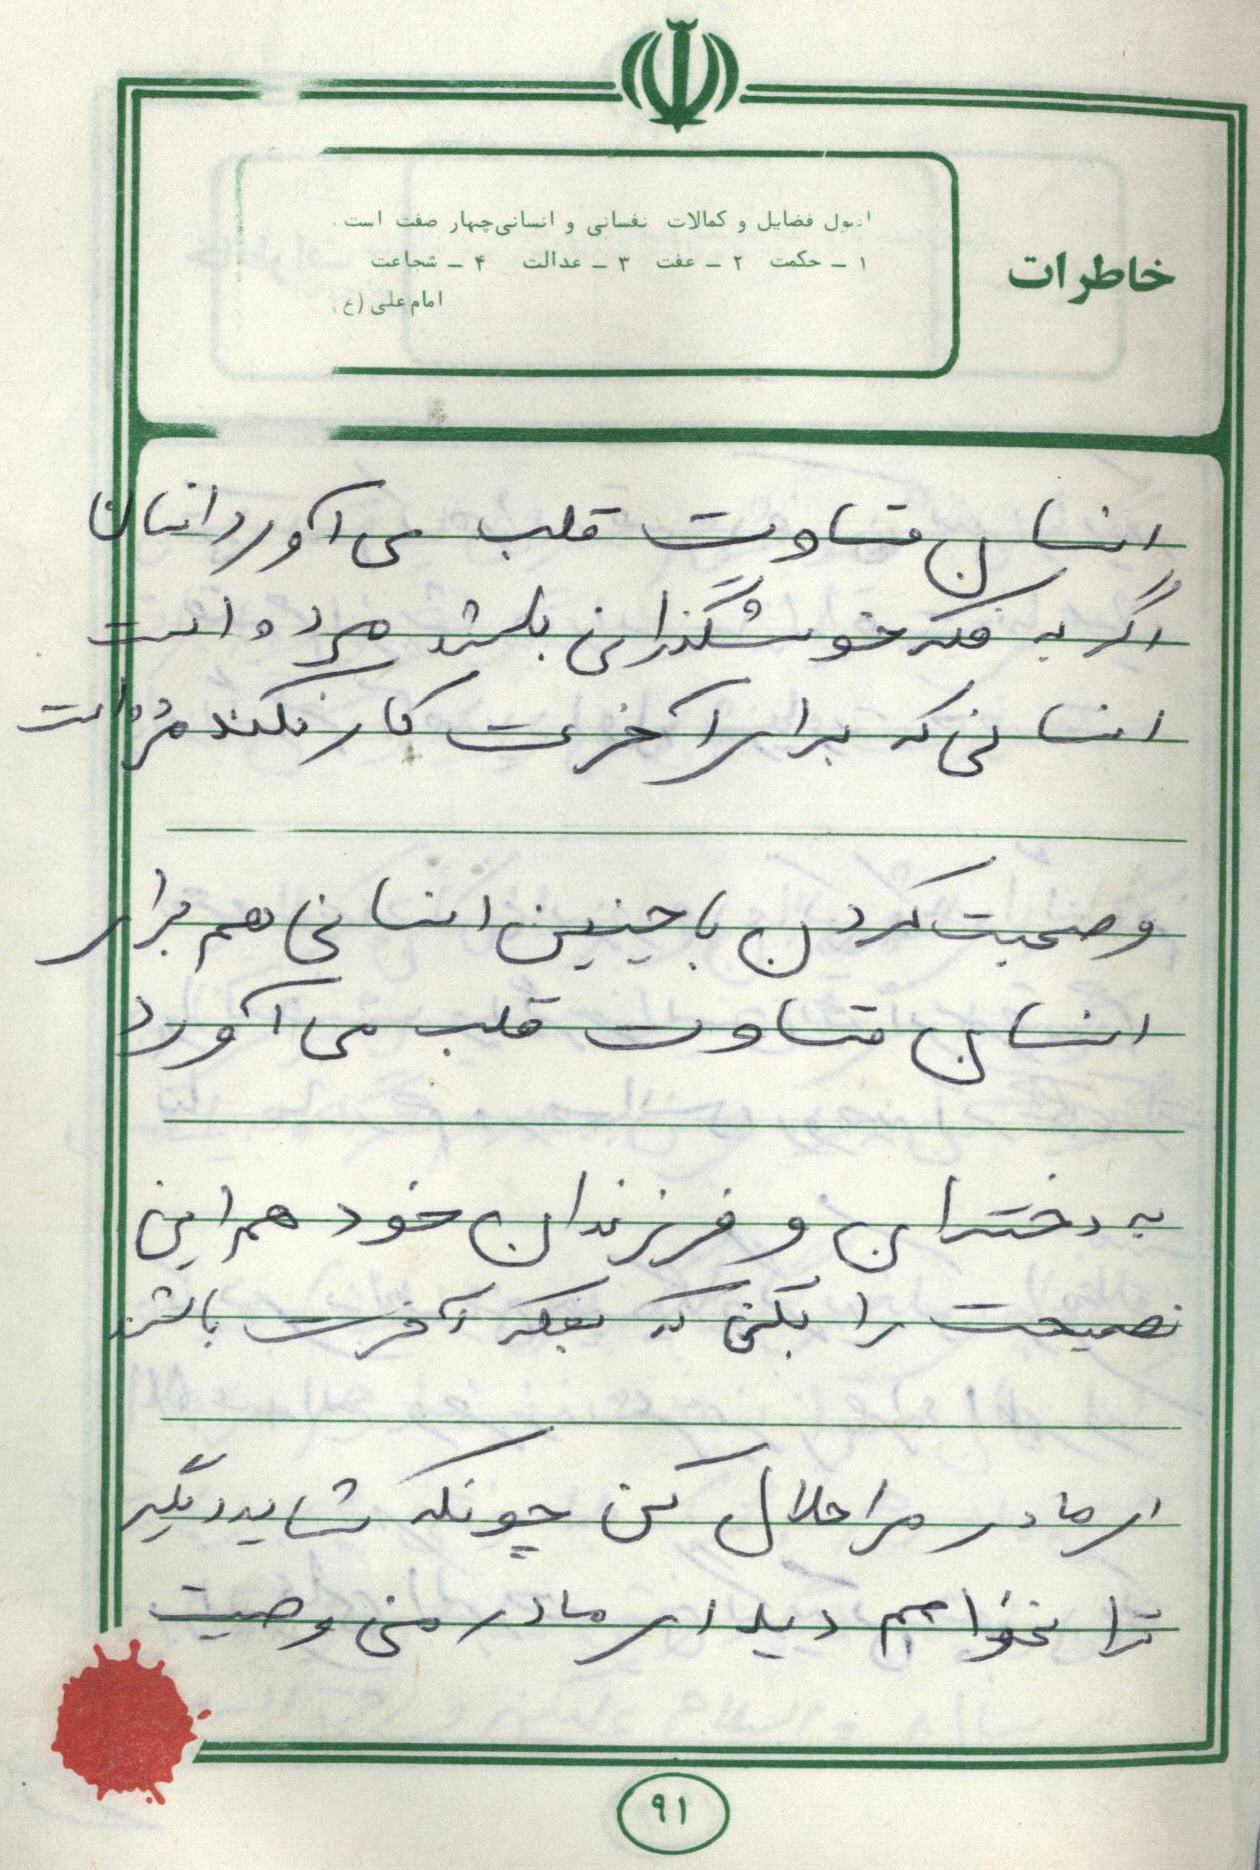 اصول فضایل و کمالات نفسانی و انسانی چهار صفت است.
۱ ـ حکمت ۲ ـ عفت ۳ ـ عدالت ۴ ـ شجاعت
امام علی (ع)
خاطرات
انسان قساوت قلب می آورد انسان
اگر به فکر خوشگذرانی باشد مرده است
انسانی که برای آخرت کار نکند مرده است
و صحبت کردن با چنین انسانی هم برای
انسان قساوت قلب می آورد
به دختران و فرزندان خود هم این
نصیحت را بکنی که بفکر آخرت باشند
ای مادر مرا حلال کن چونکه شاید دیگر
ترا نخواهم دید ای مادر من وصیت
۹۱